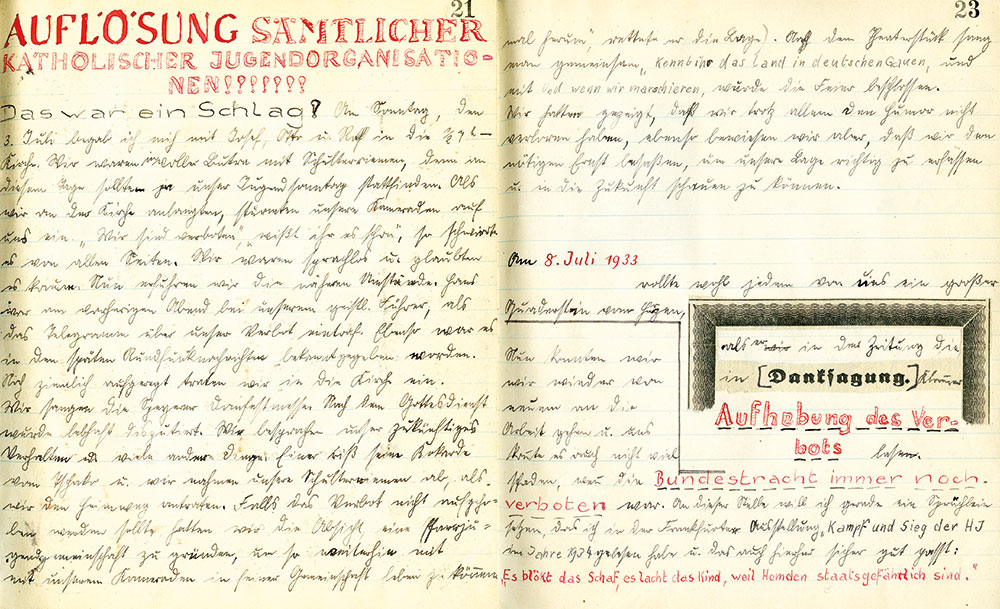 21
AUFLÖSUNG SÄMTLICHER
KATHOLISCHER JUGENDORGANISATIO-
NEN???????
Das war ein Schlag? Am Sonntag, den
3. Juli begab ich mich mit Josef, und in die
Kirche. Wir waren in voller mit Schulterriemen, denn an
diesem Tage sollte ja unser Jugendsonntag stattfinden. Als
wir an der Kirche anlangten, stürmten unsere Kameraden auf
uns ein. „Wir sind verboten", „wißt ihr es schon", so schwirrte
es von allen Seiten. Wir waren sprachlos u. glaubten
es kaum. Nun erfuhren wir die näheren Umstände. Hans
war am vorherigen Abend bei unserem geistl. Führer, als
das Telegramm über unser Verbot eintraf. Ebenso war es
in den späten Rundfunknachrichten bekannt gegeben worden.
Noch ziemlich aufgeregt traten wir in die Kirche ein.
Wir sangen die Speyerer Domfestmesse. Nach dem Gottesdienst
wurde lebhaft diskutiert. Wir besprachen unser zukünftiges
Verhalten u. viele andere Dinge. Einer riß seine Kokarde
vom Tschako u. wir nahmen unsere Schulterriemen ab, als
wir den Heimweg antraten. Falls das Verbot nicht aufgeho-
ben werden sollte hatten wir die Absicht eine Pfarrju-
gendgemeinschaft zu gründen, um so weiterhin mit
mit unseren Kameraden in seiner Gemeinschaft leben zu können
23
mal herum", rettete er die Lage). Nach dem Theaterstück sang
man gemeinsam „Kennt ihr das Land in deutschen Gauen, und
mit Und wenn wir marschieren, wurde die Feier beschlossen.
Wir hatten gezeigt, daß wir trotz allem den Humor nicht
verloren haben, ebenso bewiesen wir aber, daß wir den
nötigen Ernst besaßen, um unsere Lage richtig zu erfassen
u. in die Zukunft schauen zu können.
Am 8. Juli 1933
rollte wohl jedem von uns ein großer
Quaderstein vom Herzen,
als er wir in der Zeitung die
in [Danksagung.]
Aufhebung des Ver-
bots lesen.
Nun konnten wir
wir wieder von
neuem an die
Arbeit gehen u. uns
konnte es auch nicht viel
schaden, wenn die Bundestracht immer noch
verboten war. An dieser Stelle will ich gerade ein Sprüchlein
setzen, das ich in der Frankfurter Ausstellung „Kampf und Sieg der HJ
im Jahre 1934 gelesen habe u. das auch hierher sicher gut passt:
„Es blökt das Schaf, es lacht das Kind, weil Hemden staatsgefährlich sind."